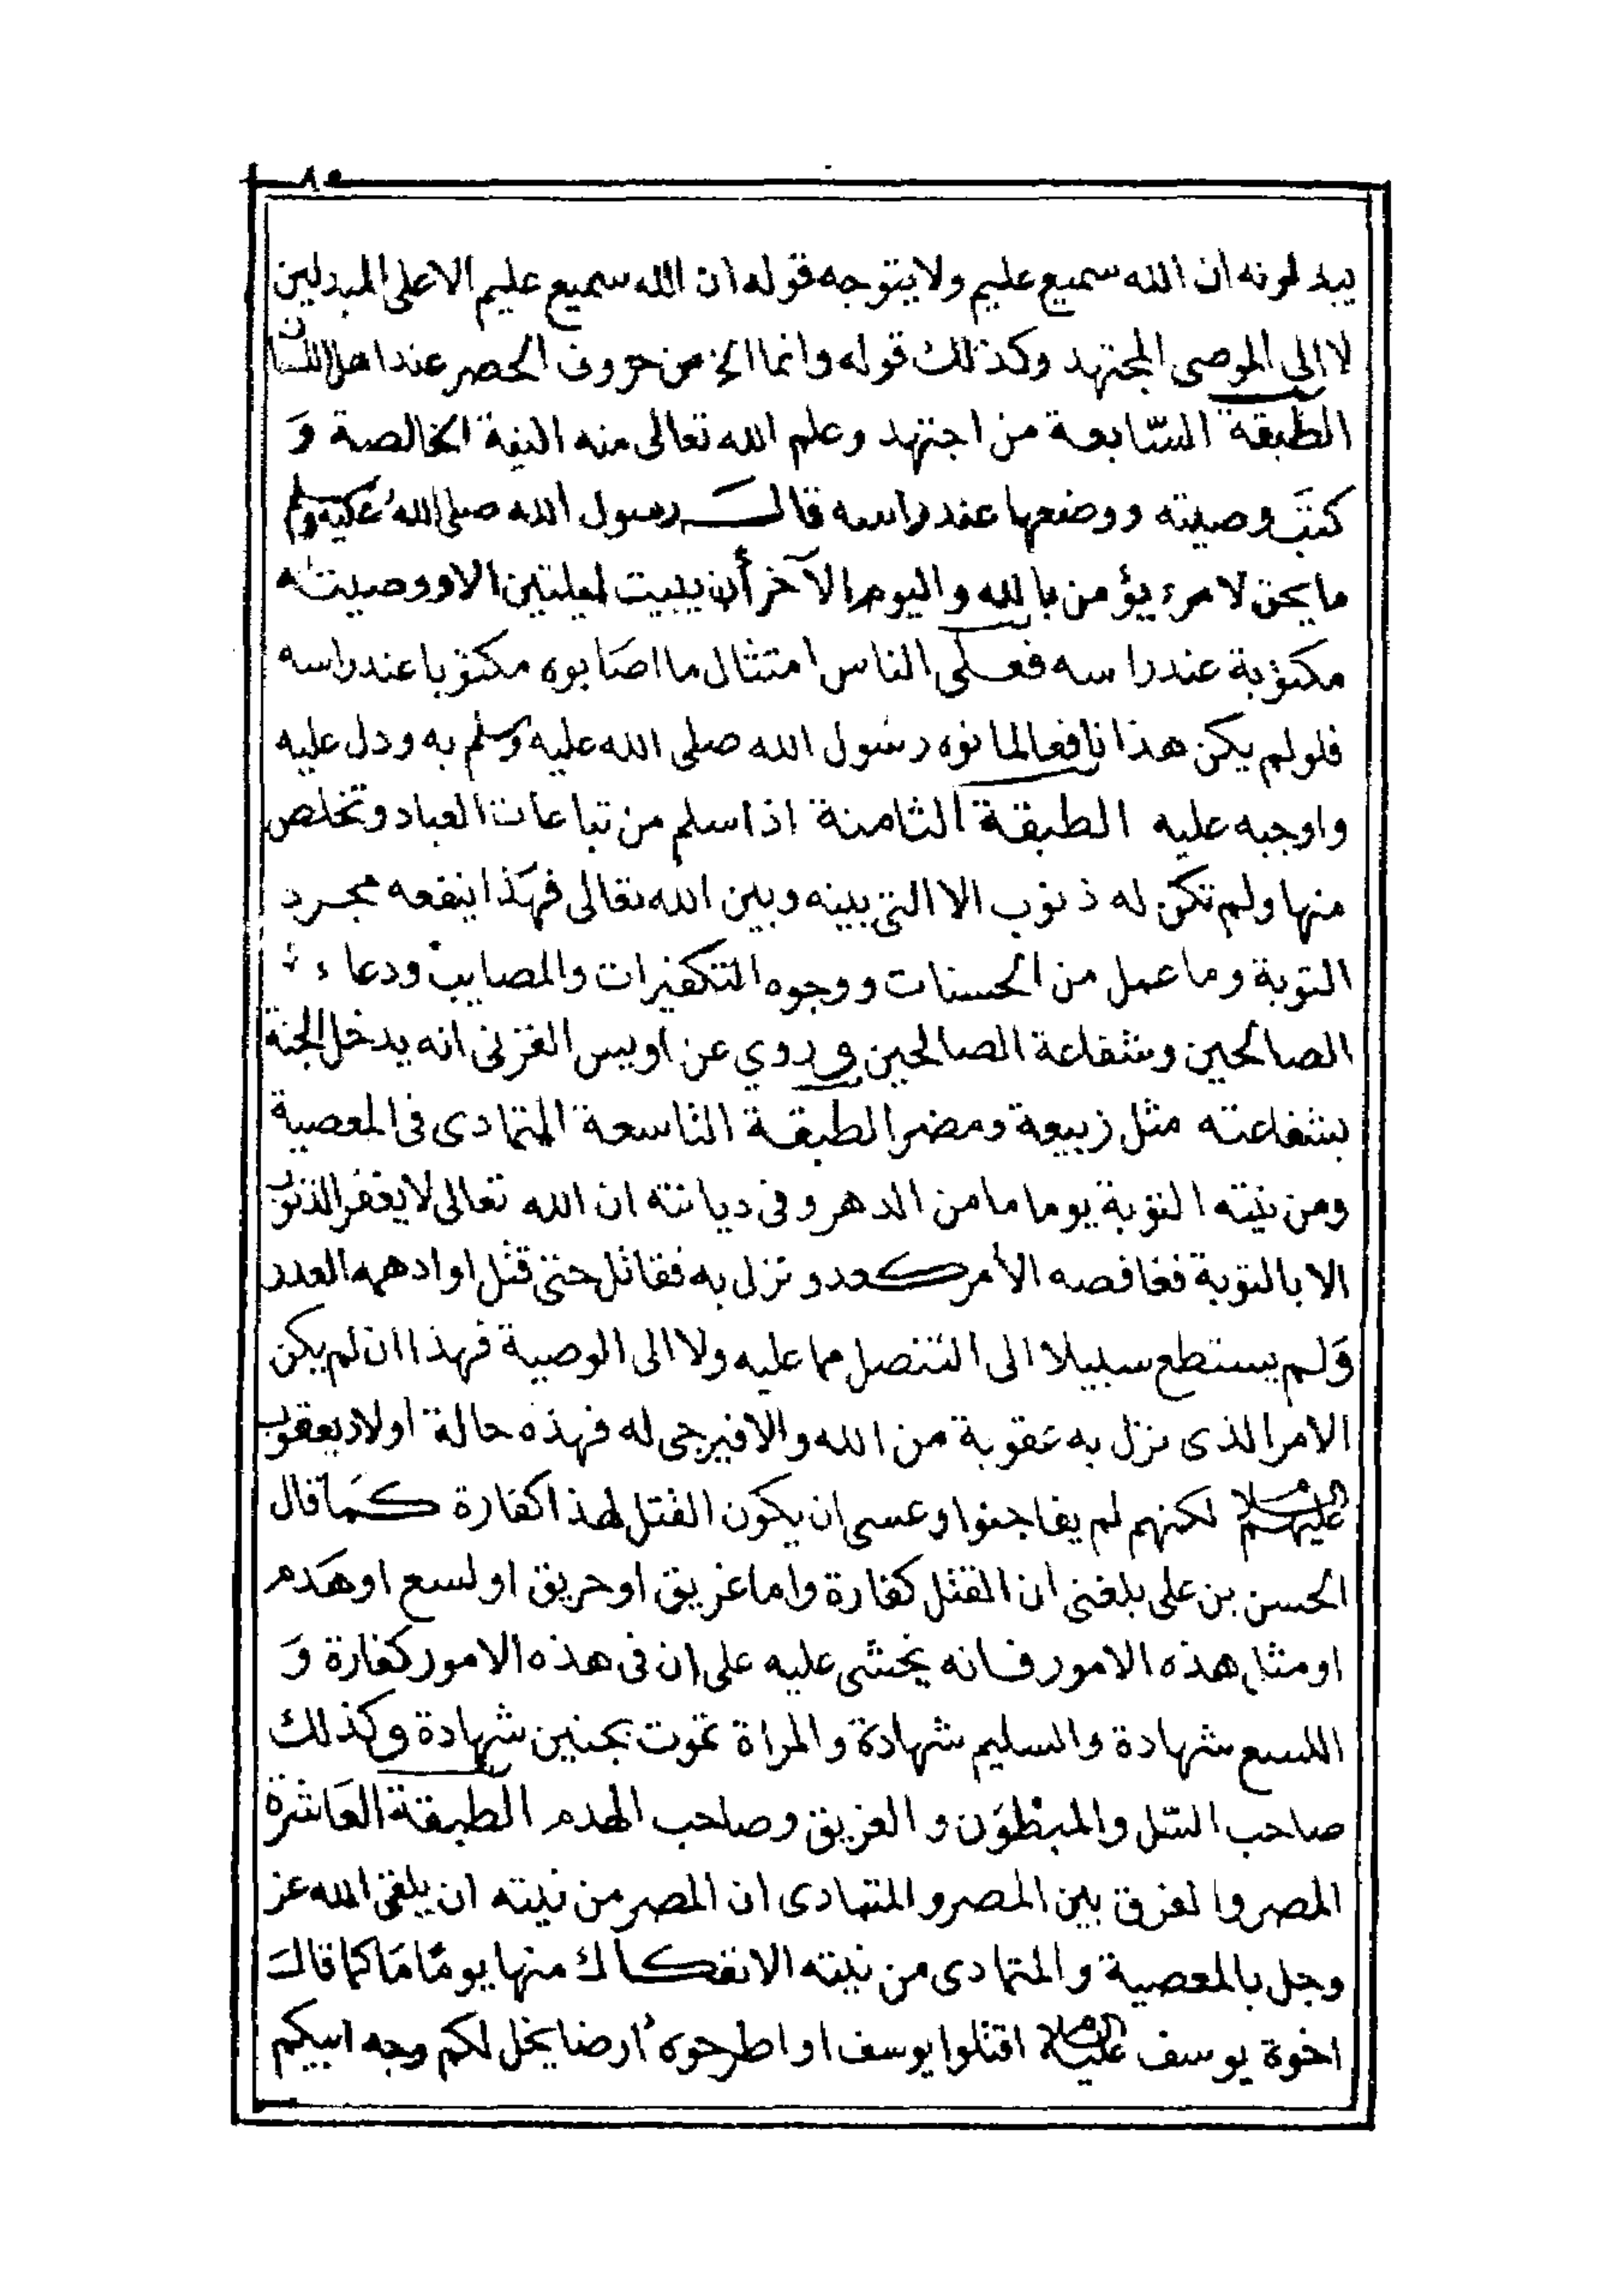 ٨٥
يبدلونه ان الله سميع عليم ولا يتوجه قوله ان الله سميع عليم الا على المبدلين
لا الى الموصى المجتهد وكذلك قوله وانما الخ من حروف الحصر عند اهل اللسان
الطبقة السّابعة من اجتهد وعلم الله تعالى منه النية الخالصة وَ
كتبَ وصيته ووضعها عند راسه قال رسول الله صلى الله عليه وسلم
ما يحق لامرء يؤمن بالله واليوم الآخر أن يبيت ليلتين الا ووصيته
مكتوبة عند راسه فعلى الناس امتثال ما اصَابوه مكتوبا عند راسه
فلو لم يكن هذا نافعا لما نوه رسُول الله صلى الله عليه وسلم به ودل عليه
واوجبه عليه الطبقة الثامنة اذا سلم من تباعات العباد وتخلص
منها ولم تكن له ذنوب الا التي بينه وبين الله تعالى فهَذا ينفعه مجرد
التوبة وما عمل من الحسنات ووجوه التكفيرات والمصايب ودعاء
الصالحين وشفاعة الصالحين وروي عن اويس القرني انه يدخل الجنة
بشفاعته مثل ربيعة ومضر الطبقة التاسعة المتمادى في المعصية
ومن نيته التوبة يوما ما من الدهر وفي ديانته ان الله تعالى لا يغفر الذنوب
الا بالتوبة فغافصه الأمر كعدو نزل به فقاتل حتى قتل او ادهمه العدو
وَلم يستطع سبيلا الى التنصل مما عليه ولا الى الوصية فهذا ان لم يكن
الامر الذى نزل به عقوبة من الله والا فيرجى له فهذه حالة اولاد يعقوب
عليهم السلام لكنهم لم يفاجئوا وعسى ان يكون القتل لهذا كفارة كمَا قال
الحسن بن على بلغني ان القتل كفارة واما غريق او حريق او لسع او هَدم
او مثل هذه الامور فانه يخشى عليه على ان في هذه الامور كفارة وَ
اللسع شهادة والسليم شهادة والمراة تموت بجنين شهادة وكذلك
صاحب السّل والمبْطوَن والغريق وصاحب الهدم الطبقة العَاشرة
المصر والفرق بين المصر والمتمادى ان المصر من نيته ان يلقى الله عز
وجل بالمعصية والمتمادى من نيته الانفكاك منها يومًا مَا كما قالَ
اخوة يوسف عليه السلام اقتلوا يوسف او اطرحوهُ ارضا يخل لكم وجه ابيكم